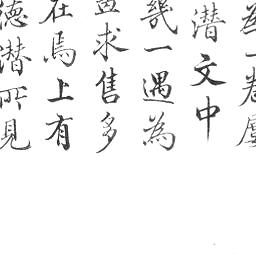 為一卷屬
潛文中
幾一遇為
求售多
在焉上有
德潛所見